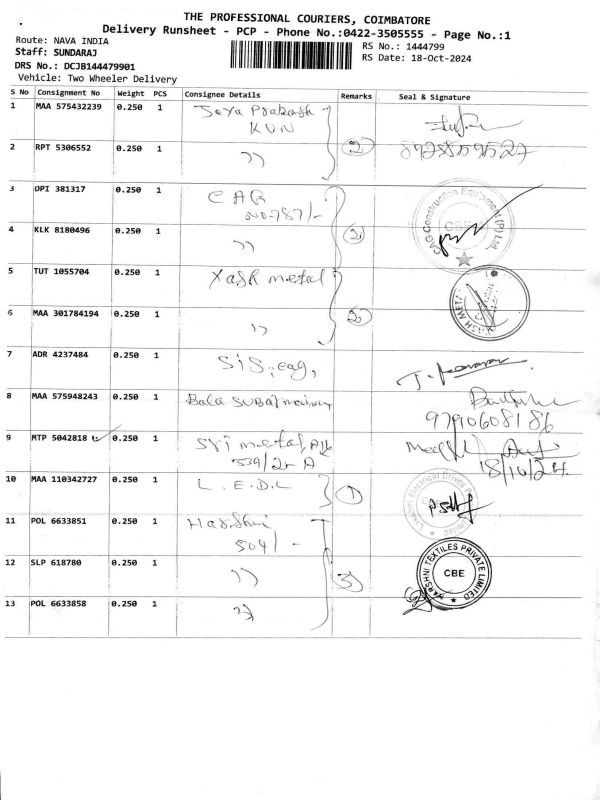 THE PROFESSIONAL COURIERS, COIMBATORE
Delivery Runsheet - PCP - Phone No.:0422-3505555 - Page No.:1
Route: NAVA INDIA
Staff: SUNDARAJ
DRS No.: DCJB144479901
Vehicle: Two Wheeler Delivery
RS No.: 1444799
RS Date: 18-Oct-2024
S No Consignment No Weight PCS Consignee Details Remarks Seal & Signature
1 MAA 575432239 0.250 1 Jaya Prakash
KUN
2 RPT 5306552 0.250 1 ,, 2
3 DPI 381317 0.250 1 CAG
NO-787/-
CAG Construction Equipment (P) Ltd.
CBE
4 KLK 8180496 0.250 1 ,, 2
5 TUT 1055704 0.250 1 Yash metal
YASH METAL
6 MAA 301784194 0.250 1 ,, 2
7 ADR 4237484 0.250 1 SiS
8 MAA 575948243 0.250 1 Bala
9790608186
9 MTP 5042818 0.250 1 Sri metal,
539/2
18/10/24
10 MAA 110342727 0.250 1 L.E.D.L 1
Electrical Drives
Limited
11 POL 6633851 0.250 1 Harshni
504/-
12 SLP 618780 0.250 1 ,, 3
HARSHNI TEXTILES PRIVATE LIMITED
CBE
13 POL 6633858 0.250 1 ,,